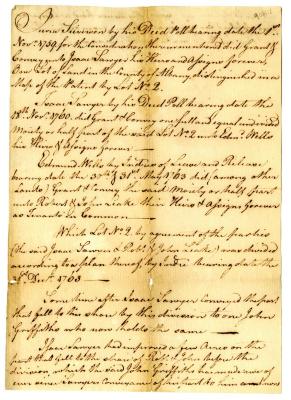 June Survivor by his Deed Poll bearing date the 1st
Novr. 1759 for the Consideration therein mentioned did Grant &
Convey unto Isaac Sawyer his Heirs and Assigns forever,
One Lot of Land in the County of Albany distinguished in a
Map of the Patent by Lot No. 2
Isaac Sawyer by his Deed Poll bearing date the
18th. Novr. 1760. did Grant & Convey one full and equal undivided
Moiety or half part of the said Lot No. 2 unto Edmd. Wells
his Heirs & Assigns forever
Edmund Wells by Indres of Lease and Release
bearing date the 30th & 31st May 1763 did (among other
Lands) Grant & Convey the said Moiety or half part
unto Robert & John Leake their Heirs & Assigns forever
as Tenants in Common
Which Lot No. 2 by agreement of the parties
(the said Isaac Sawyer & Robt. & John Leake) was divided
according to a plan thereof by Indre bearing date the
Decr. 1763
Some time after Isaac Sawyer Conveyed the part
that fell to his share by this division to one John
Griffiths who now holds the same
Isaac Sawyer had improved a few Acres on the
part that fell to the share of Robt. & John before the
division, which the said John Griffiths has made use of
ever since Sawyers Conveyance of his part to him